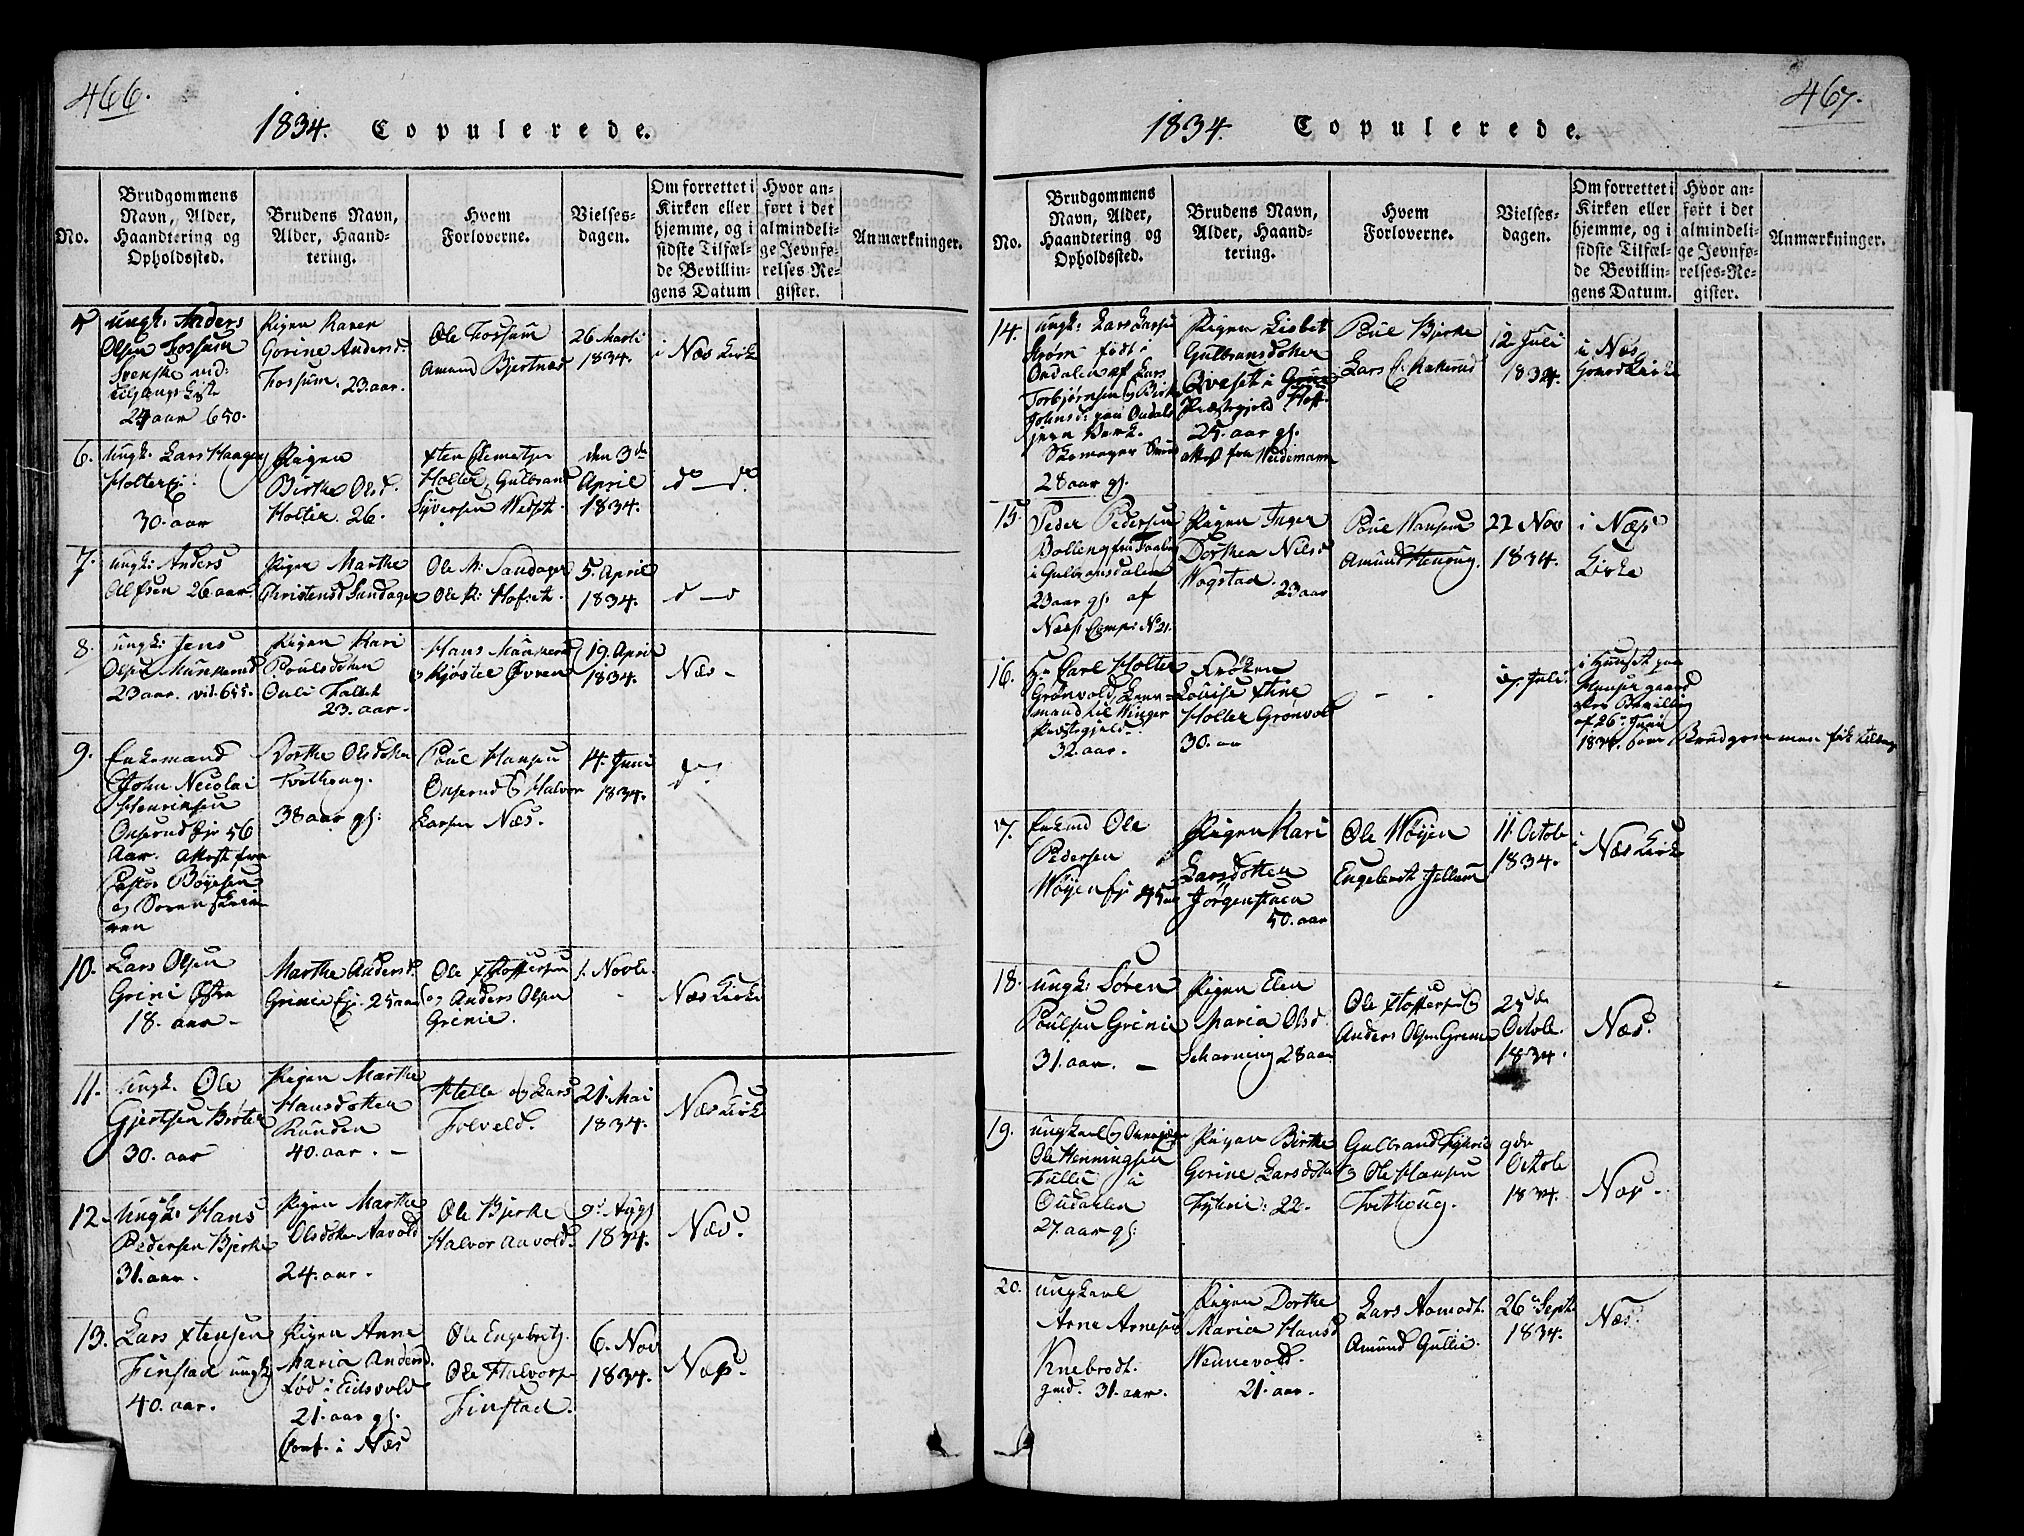 466.
1834. Copulerede.
No.
Brudgommens
Navn, Alder,
Haandtering og
Opholdssted.
Brudens Navn,
Alder, Haand-
tering.
Hvem
Forloverne.
Vielses-
dagen.
Om forrettet i
Kirken eller
hjemme, og i
sidste Tilfæl-
de Bevillin-
gens Datum
Hvor an-
ført i det
almindeli-
ge Jevnfø-
relses-Re-
gister.
Anmærkninger.
5
Ungk: Anders
Olsen Fossum
Svenske
24 aar 650.
Pigen Karen
Gorine Andersd.
Fossum. 23. aar.
Ole Fossum
Amund Bjertnæs
26 Marti
1834.
i Næs Kirke
6.
Ungk. Lars Haagens
Holter Ej.
30. aar
Pigen
Birthe Olsd.
Holter. 26.
Holter, Gulbrand
Syversen
den 3de
April
1834.
do do
7.
Ungk: Anders
Alfsen 26 aar
Pigen Marthe
Christensd Sandager
Ole M: Sandager
Ole K: Hofset.
5. April
1834.
d d
8.
Ungk: Jens
Olsen Munkerud
23 aar.
Pigen Kari
Poulsdotter
23. aar.
Hans Munkerud
19. April
1834.
Næs
9.
Enkemand
John Nicolai
Henriksen
Onsrud Ejr 56
Aar. Attest fra
Pastor Bøyesen
og Sorenskriv
ren
Dorthe Olsdotter
Tvethoug.
38 aar gl:
Poul Hansen
Onsrud & Halvor
Larsen Næs.
14. Juni
1834.
do
10.
Lars Olsen
Grini Østre
18. aar
Marthe Andersd.
Grinie Ej. 25 aar
Ole Xtoffersen
og Anders Olsen
Grinie.
1. Novbr.
Næs Kirke
11.
Ungk. Ole
Gjertsen Brøter
30. aar
Pigen Marthe
Hansdotter
Runden
40. aar.
Helle og Lars
Folveld.
21. Mai
1834.
Næs Kirke
12.
Ungk: Hans
Pedersen Bjerke
31. aar.
Pigen Marthe
Olsdotter Aavold
24. aar.
Ole Bjerke
Halvor Aavold.
9. Augs
1834.
Næs.
13.
Lars Xtensen
Finstad ungk
40. aar.
Pigen Anne
Maria Andersd.
fød i Eidsvold
21. aar gl.
Conf. i Næs
Ole Engebrets.
Ole Halvors.
Finstad.
6. Nov
1834.
Næs.
467.
1834. Copulerede.
No.
Brudgommens
Navn, Alder,
Haandtering og
Opholdssted.
Brudens Navn,
Alder, Haand-
tering.
Hvem
Forloverne.
Vielses-
dagen.
Om forrettet i
Kirken eller
hjemme, og i
sidste Tilfæl-
de Bevillin-
gens Datum.
Hvor an-
ført i det
almindeli-
ge Jevnfø-
relses-Re-
gister.
Anmærkninger.
14.
Ungk: Lars Larsen
Strøm født i
Oudalen af Lars
Torbjørnsen & Birthe
Johnsd: paa Oudals
jern Værk.
Skomager Svend
28 aar gl.
Pigen Lisbet
Gulbransdotter
Qveset i Grue
Præstegjeld Hoff
25. aar gl.
attest fra Weidemann
Poul Bjerke
Lars E: Rakerud
12 Juli
1834.
i Næs
Kirke
15.
Peder Pedersen
Bolleng fra Faaberg
i Gulbransdalen
23 aar gl. af
Næss Comp: No 21.
Pigen Inger
Dorthea Nilsd
Wogstad. 23 aar
Poul Hansen
Amund Henrug.
22 Nov
1834.
i Næs
Kirke
16.
Hr Carl Holter
Grønvold, Lens-
mand til Winger
Præstegjeld.
32. aar.
Frøken
Louise Xtine
Holter Grønvold
30. aar
17. Juli.
i Huuset paa
Huusegaard
efter Bevilling
af 26. Juni
1834. som Brudgommen fik tilbag
17.
Enkmd Ole
Pedersen
Wøyen Ej 45 aar
Pigen Kari
Larsdotter
Jørgenstuen
50. aar
Ole Wøyen
Engebret Jellum
11. Octob
1834.
i Næs Kirke
18.
Ungk: Sören
Poulsen Grinie
31. aar.
Pigen Elen
Maria Olsd.
Skarning 28 aar
Ole Xtoffersen &
Anders Olsen Grinie
25de
Octob.
1834.
Næs.
19.
Ungkarl &
Ole Henningsen
Fullu i
Oudalen
27. aar gl:
Pigen Birthe
Gorine Larsdotter
Fyhrie: 22.
Gulbrand Fyhrie
& Ole Hansen
Tvethoug.
9de
Octob
1834.
Næs.
20.
Ungkarl
Arne Arnesen
Knebrodt.
gmd. 31. aar.
Pigen Dorthe
Maria Hansd
Nennevold.
21. aar.
Lars Aamodt.
Amund Gullie.
26. Sept.
1834.
Næs.